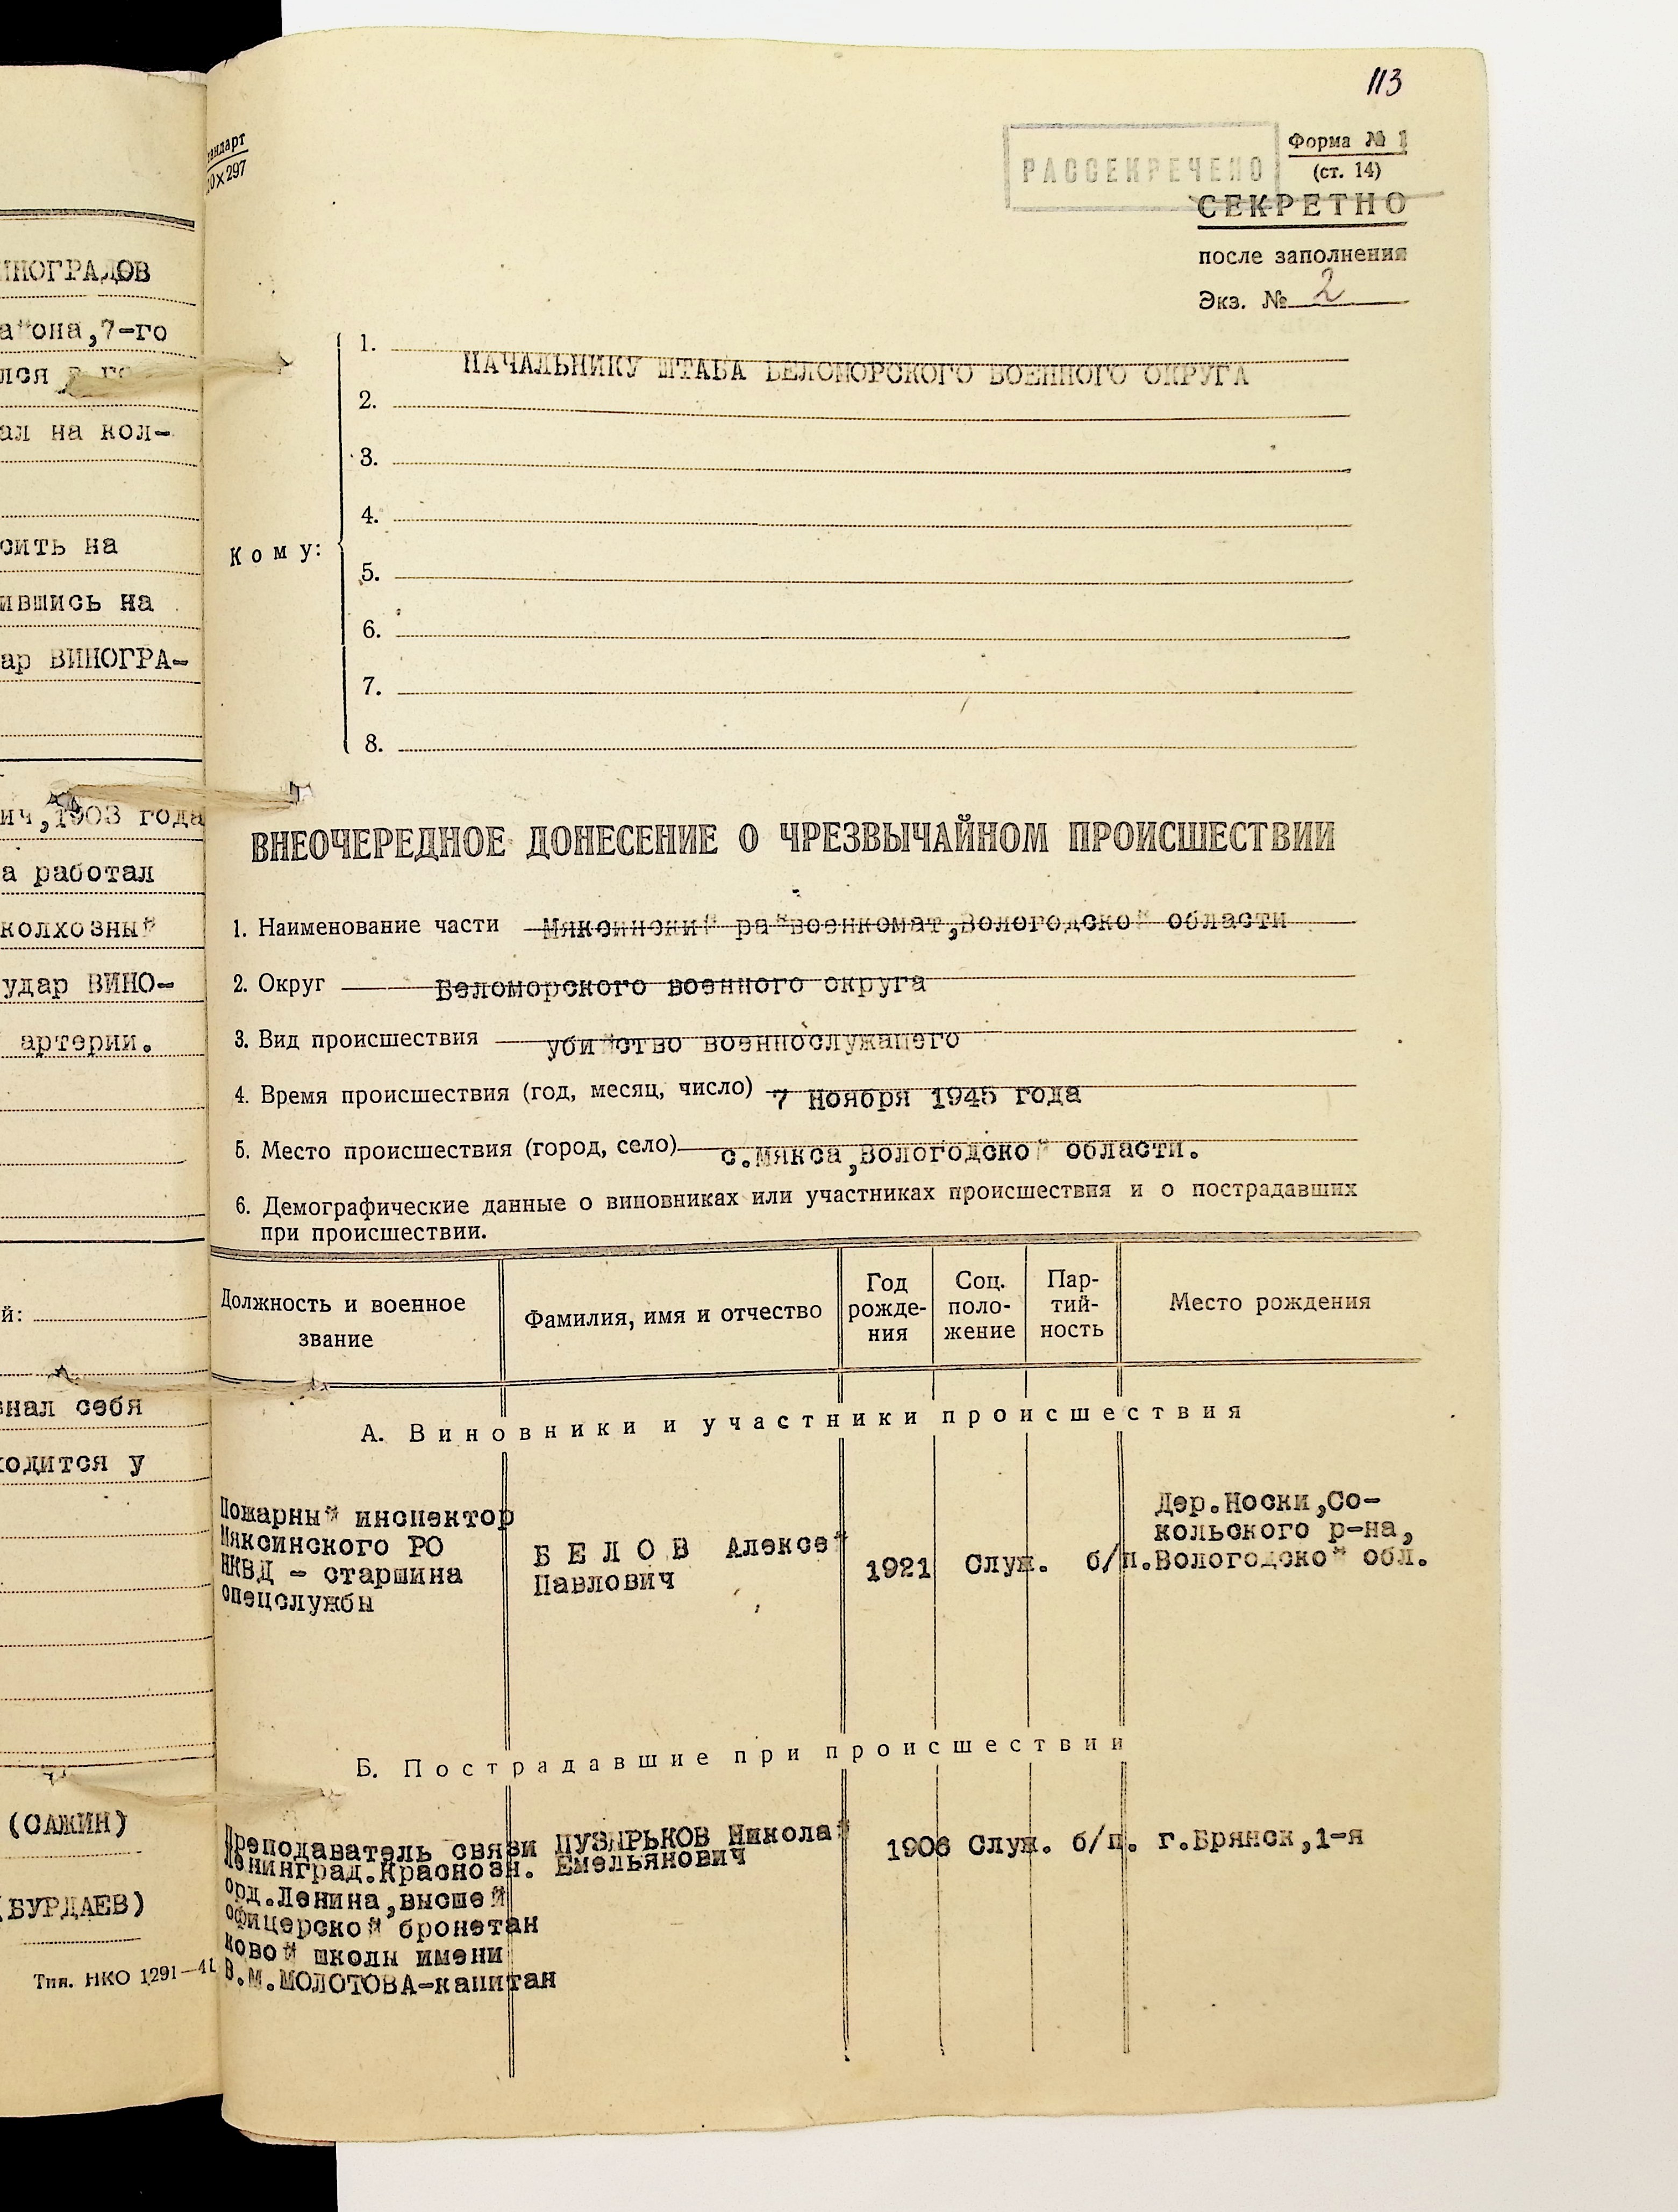 ИНОГРАДОВ
айона,7-го
лся в го
ал на кол-
сить на
ившись на
ар ВИНОГРА-
ич,1903 года
а работал
колхозный
удар ВИНО-
артерии.
й:
знал себя
ходится у
(САЖИН)
(БУРДАЕВ)
Тип. НКО 1291—41
113
тандарт
10×297
РАССЕКРЕЧЕНО
Форма № 1
(ст. 14)
СЕКРЕТНО
после заполнения
Экз. № 2
Кому:
1. НАЧАЛЬНИКУ ШТАБА БЕЛОМОРСКОГО ВОЕННОГО ОКРУГА
2.
3.
4.
5.
6.
7.
8.
ВНЕОЧЕРЕДНОЕ ДОНЕСЕНИЕ О ЧРЕЗВЫЧАЙНОМ ПРОИСШЕСТВИИ
1. Наименование части Мяксинский райвоенкомат,Вологодской области
2. Округ Беломорского военного округа
3. Вид происшествия убийство военнослужащего
4. Время происшествия (год, месяц, число) 7 ноября 1945 года
5. Место происшествия (город, село) с.Мякса,Вологодской области.
6. Демографические данные о виновниках или участниках происшествия и о пострадавших
при происшествии.
Должность и военное
звание
Фамилия, имя и отчество
Год
рожде-
ния
Соц.
поло-
жение
Пар-
тий-
ность
Место рождения
А. Виновники и участники происшествия
Пожарный инспектор
Мяксинского РО
НКВД - старшина
спецслужбы
БЕЛОВ Алексей
Павлович
1921
Служ.
б/п.
Дер.Носки,Со-
кольского р-на,
Вологодской обл.
Б. Пострадавшие при происшествии
Преподаватель связи
Ленинград.Краснозн.
орд.Ленина,высшей
офицерской бронетан
ковой школы имени
В.М.МОЛОТОВА-капитан
ПУЗЫРЬКОВ Николай
Емельянович
1906
Служ.
б/п.
г.Брянск,1-я